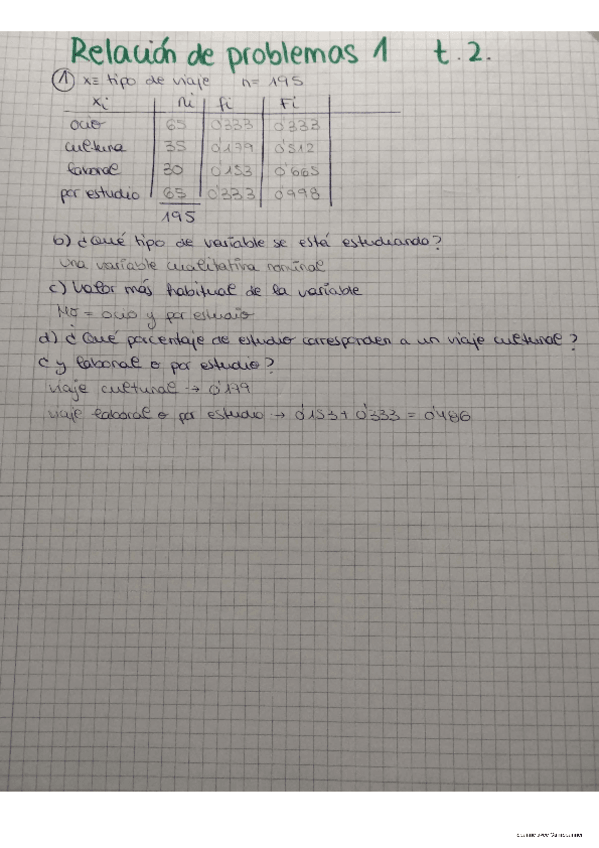 Relación de problemas 1 t.2.
① x≡ tipo de viaje n= 195
xi ni fi Fi
ocio 65 0'333 0'333
cultura 35 0'179 0'512
laboral 30 0'153 0'665
por estudio 65 0'333 0'998
195
b) ¿Qué tipo de variable se está estudiando?
una variable cualitativa nominal
c) Valor más habitual de la variable
Mo = ocio y por estudio
d) ¿Qué porcentaje de estudio corresponden a un viaje cultural?
¿ y laboral o por estudio?
viaje cultural → 0'179
viaje laboral o por estudio → 0'153 + 0'333 = 0'486